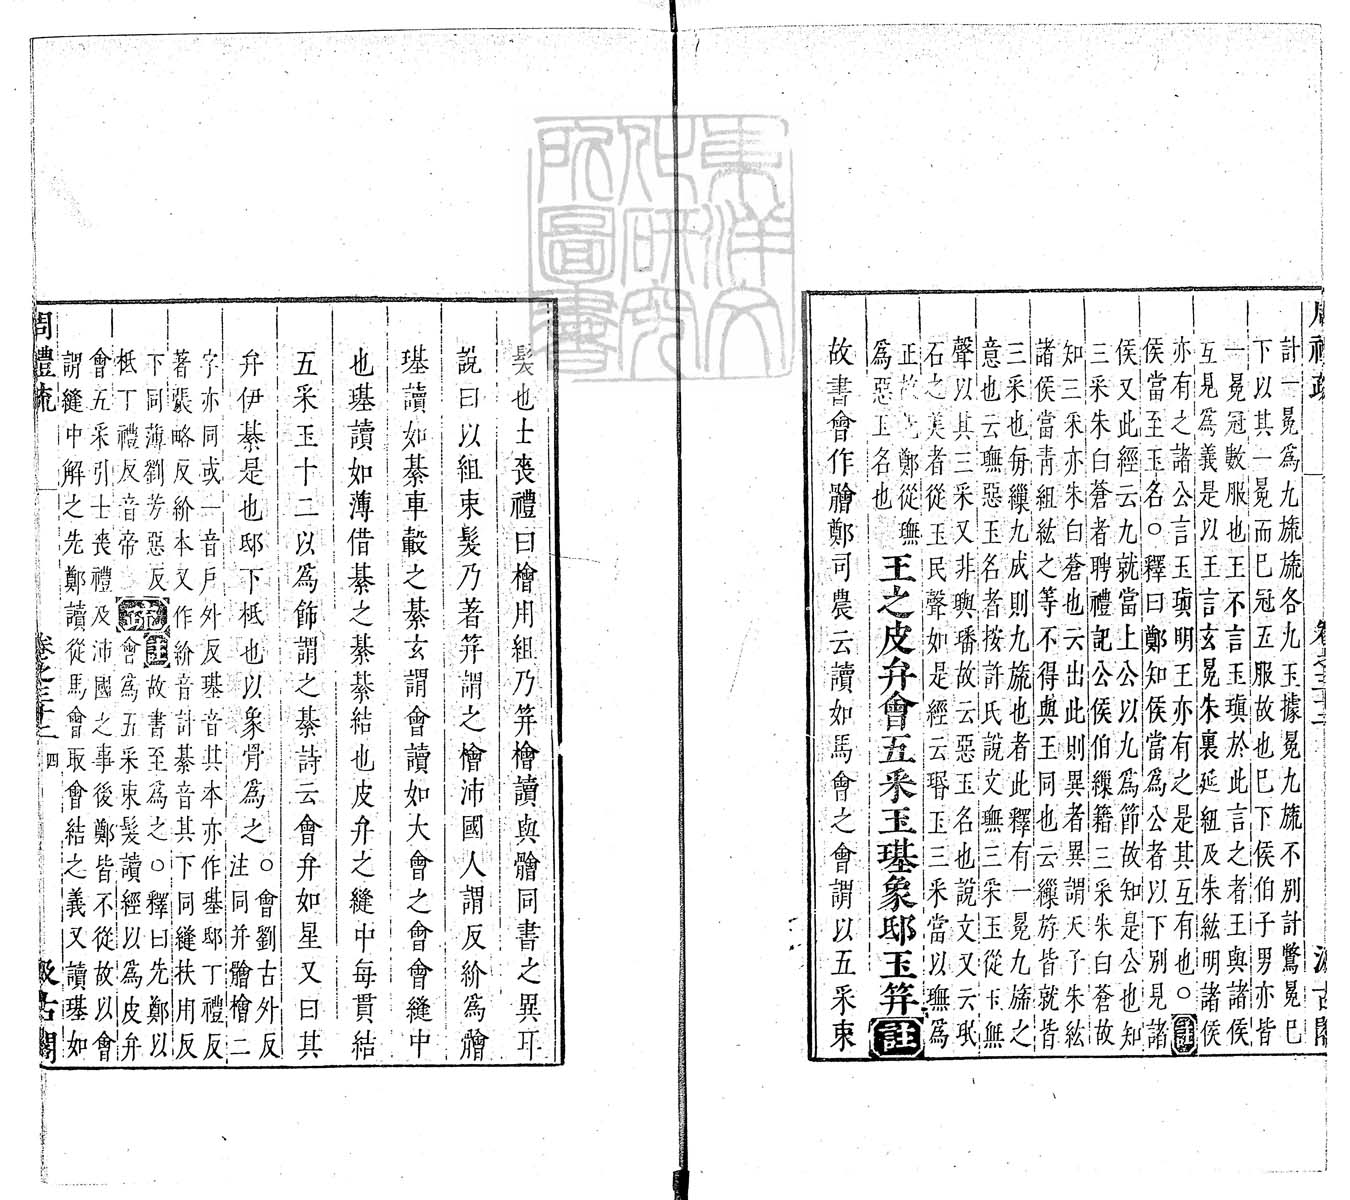 周禮疏 卷之三十二 汲古閣
計一冕爲九旒旒各九玉據冕九旒不别計鷩冕巳
下以其一冕而巳冠五服故也巳下侯伯子男亦皆
一冕冠數服也王不言玉瑱於此言之者王與諸侯
互見爲義是以王言玄冕朱裏延紐及朱紘明諸侯
亦有之諸公言玉瑱明王亦有之是其互有也○註
侯當至玉名○釋曰鄭知侯當爲公者以下别見諸
侯又此經云九就當上公以九爲節故知是公也知
三采朱白蒼者聘禮記公侯伯繅藉三采朱白蒼故
知三采亦朱白蒼也云出此則異者異謂天子朱紘
諸侯當青組紘之等不得與王同也云繅斿皆就皆
三采也每繅九成則九旒也者此釋有一冕九旒之
意也云璑惡玉名者按許氏說文璑三采玉從玉無
聲以其三采又非璵璠故云惡玉名也說文又云珉
石之美者從玉民聲如是經云瑉玉三采當以璑爲
正故先鄭從璑
爲惡玉名也
王之皮弁會五采玉璂象邸玉笄註
故書會作䯤鄭司農云讀如馬會之會謂以五采束
髮也士喪禮曰檜用組乃笄檜讀與䯤同書之異耳
說曰以組束髮乃著笄謂之檜沛國人謂反紒爲䯤
璂讀如綦車轂之綦玄謂會讀如大會之會會縫中
也璂讀如薄借綦之綦綦結也皮弁之縫中每貫結
五采玉十二以爲飾謂之綦詩云會弁如星又曰其
弁伊綦是也邸下柢也以象骨爲之
○會劉古外反
注同并䯤檜二
字亦同或一音戶外反璂音其本亦作璂邸丁禮反
著張略反紒本又作紛音計綦音其下同縫扶用反
下同薄劉芳惡反
柢丁禮反音帝
疏
註故書至爲之○釋曰先鄭以
會爲五采束髮讀經以爲皮弁
會五采引士喪禮及沛國之事後鄭皆不從故以會
謂縫中解之先鄭讀從馬會取會結之義又讀璂如
周禮疏 卷之三十二 四 汲古閣
東洋文化研究所圖書